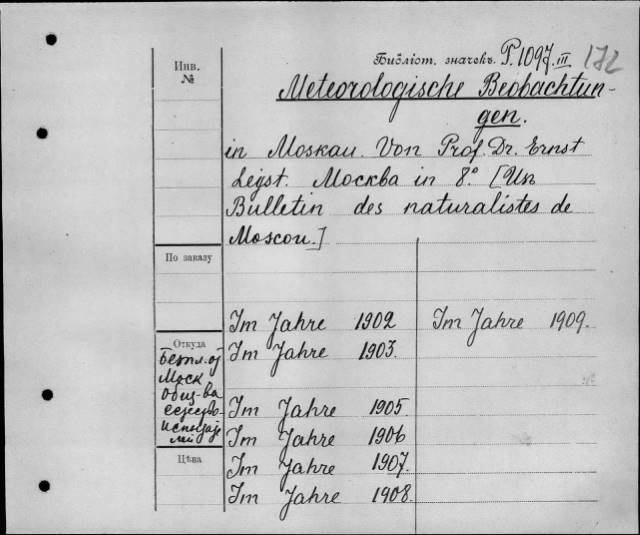 Библіот. значекъ. P.1097.III 172
Инв.
№
Meteorologische Beobachtun-
gen.
in Moskau. Von Prof. Dr. Ernst
Leyst. Москва in 8.° [Изъ
Bulletin des naturalistes de
Moscou.]
По заказу
Im Jahre 1902 Im Jahre 1909.
Откуда
Im Jahre 1903.
Моск
Общ-ва
Im Jahre 1905
Im Jahre 1906
Цѣна
Im Jahre 1907.
Im Jahre 1908.